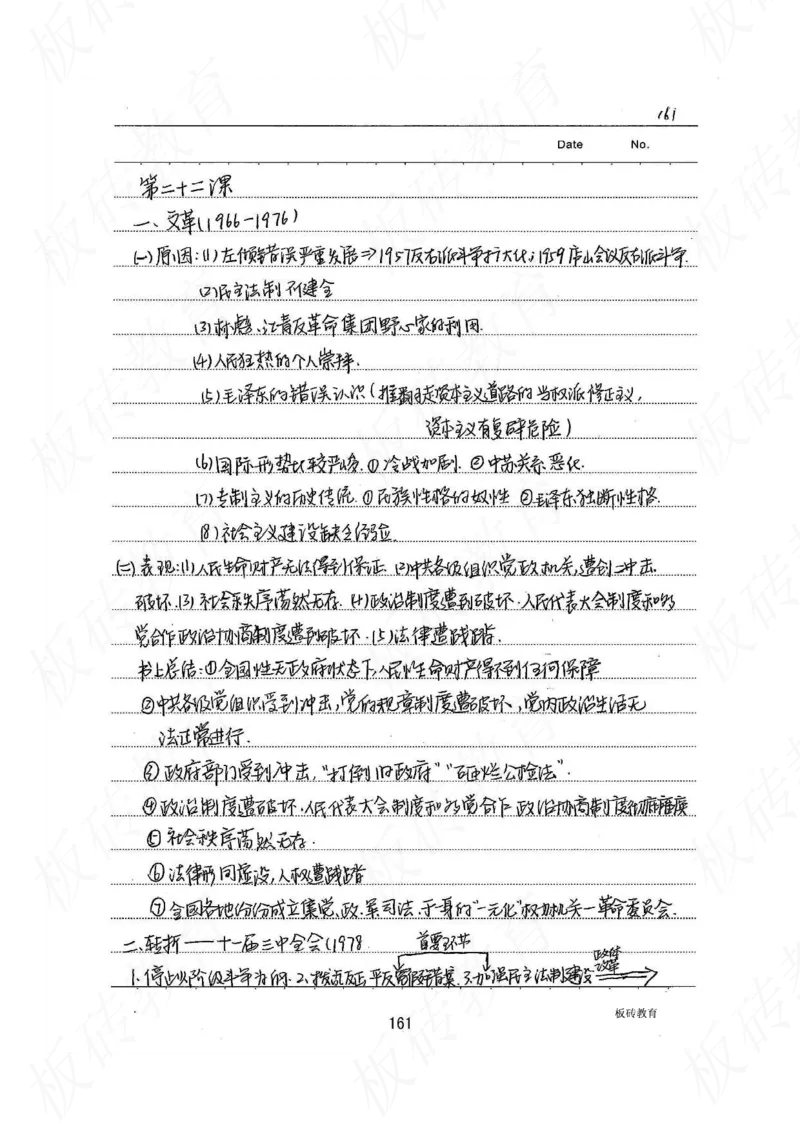 161
Date No.
第二十二课
一、文革(1966-1976)
(一)原因:(1)左倾错误严重发展⇒1957反右派斗争扩大化;1959庐山会议反右派斗争.
(2)民主法制不健全
(3)林彪、江青反革命集团野心家的利用.
(4)人民狂热的个人崇拜.
(5)毛泽东的错误认识(推翻走资本主义道路的当权派修正主义,
资本主义有复辟危险)
(6)国际形势比较严峻.①冷战加剧.②中苏关系恶化.
(7)专制主义的历史传统.①民族性格的奴性 ②毛泽东独断性格.
(8)社会主义建设缺乏经验.
(二)表现:(1)人民生命财产无法得到保证.(2)中共各级组织党政机关,遭到冲击.
破坏.(3)社会秩序荡然无存.(4)政治制度遭到破坏.人民代表大会制度和多
党合作政治协商制度遭到破坏.(5)法律遭践踏.
书上总结:①全国性无政府状态下,人民生命财产得不到任何保障
②中共各级党组织受到冲击,党的规章制度遭破坏,党内政治生活无
法正常进行.
③政府部门受到冲击,“打倒旧政府”“砸烂公检法”.
④政治制度遭破坏.人民代表大会制度和多党合作政治协商制度彻底瘫痪
⑤社会秩序荡然无存.
⑥法律形同虚设,人权遭践踏
⑦全国各地纷纷成立集党、政、军司法于一身的“一元化”权力机关—革命委员会.
二、转折——十一届三中全会(1978
首要环节
政体
改革
1.停止以阶级斗争为纲.2.拨乱反正,平反冤假错案.3.加强民主法制建设
161
板砖教育